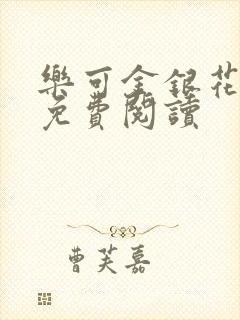 樂可金銀花
免費閱讀
曹芙嘉